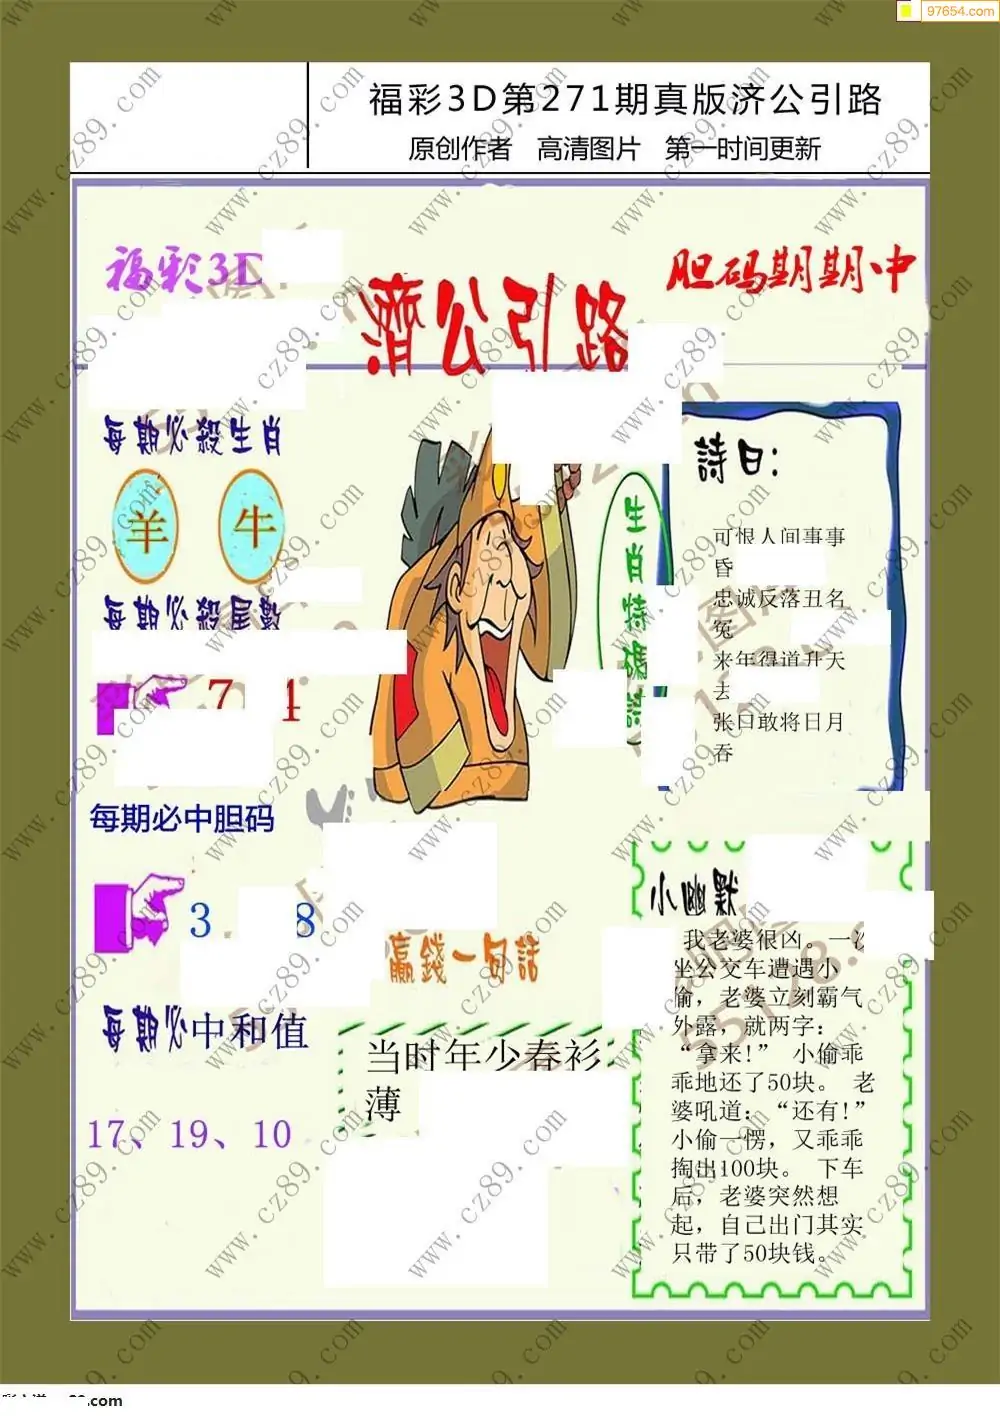 97654.com
福彩3D第271期真版济公引路
原创作者 高清图片 第一时间更新
福彩3D
濟公引路
胆码期期中
每期必殺生肖
羊 牛
每期必殺尾數
7 4
每期必中胆码
3 8
每期必中和值
17、19、10
生肖特碼詩
詩曰：
可恨人间事事
昏
忠诚反落丑名
冤
来年得道升天
去
张口敢将日月
吞
赢錢一句話
当时年少春衫
薄
小幽默
我老婆很凶。一次
坐公交车遭遇小
偷，老婆立刻霸气
外露，就两字：
“拿来!” 小偷乖
乖地还了50块。 老
婆吼道：“还有!”
小偷一愣，又乖乖
掏出100块。 下车
后，老婆突然想
起，自己出门其实
只带了50块钱。
www.cz89.com